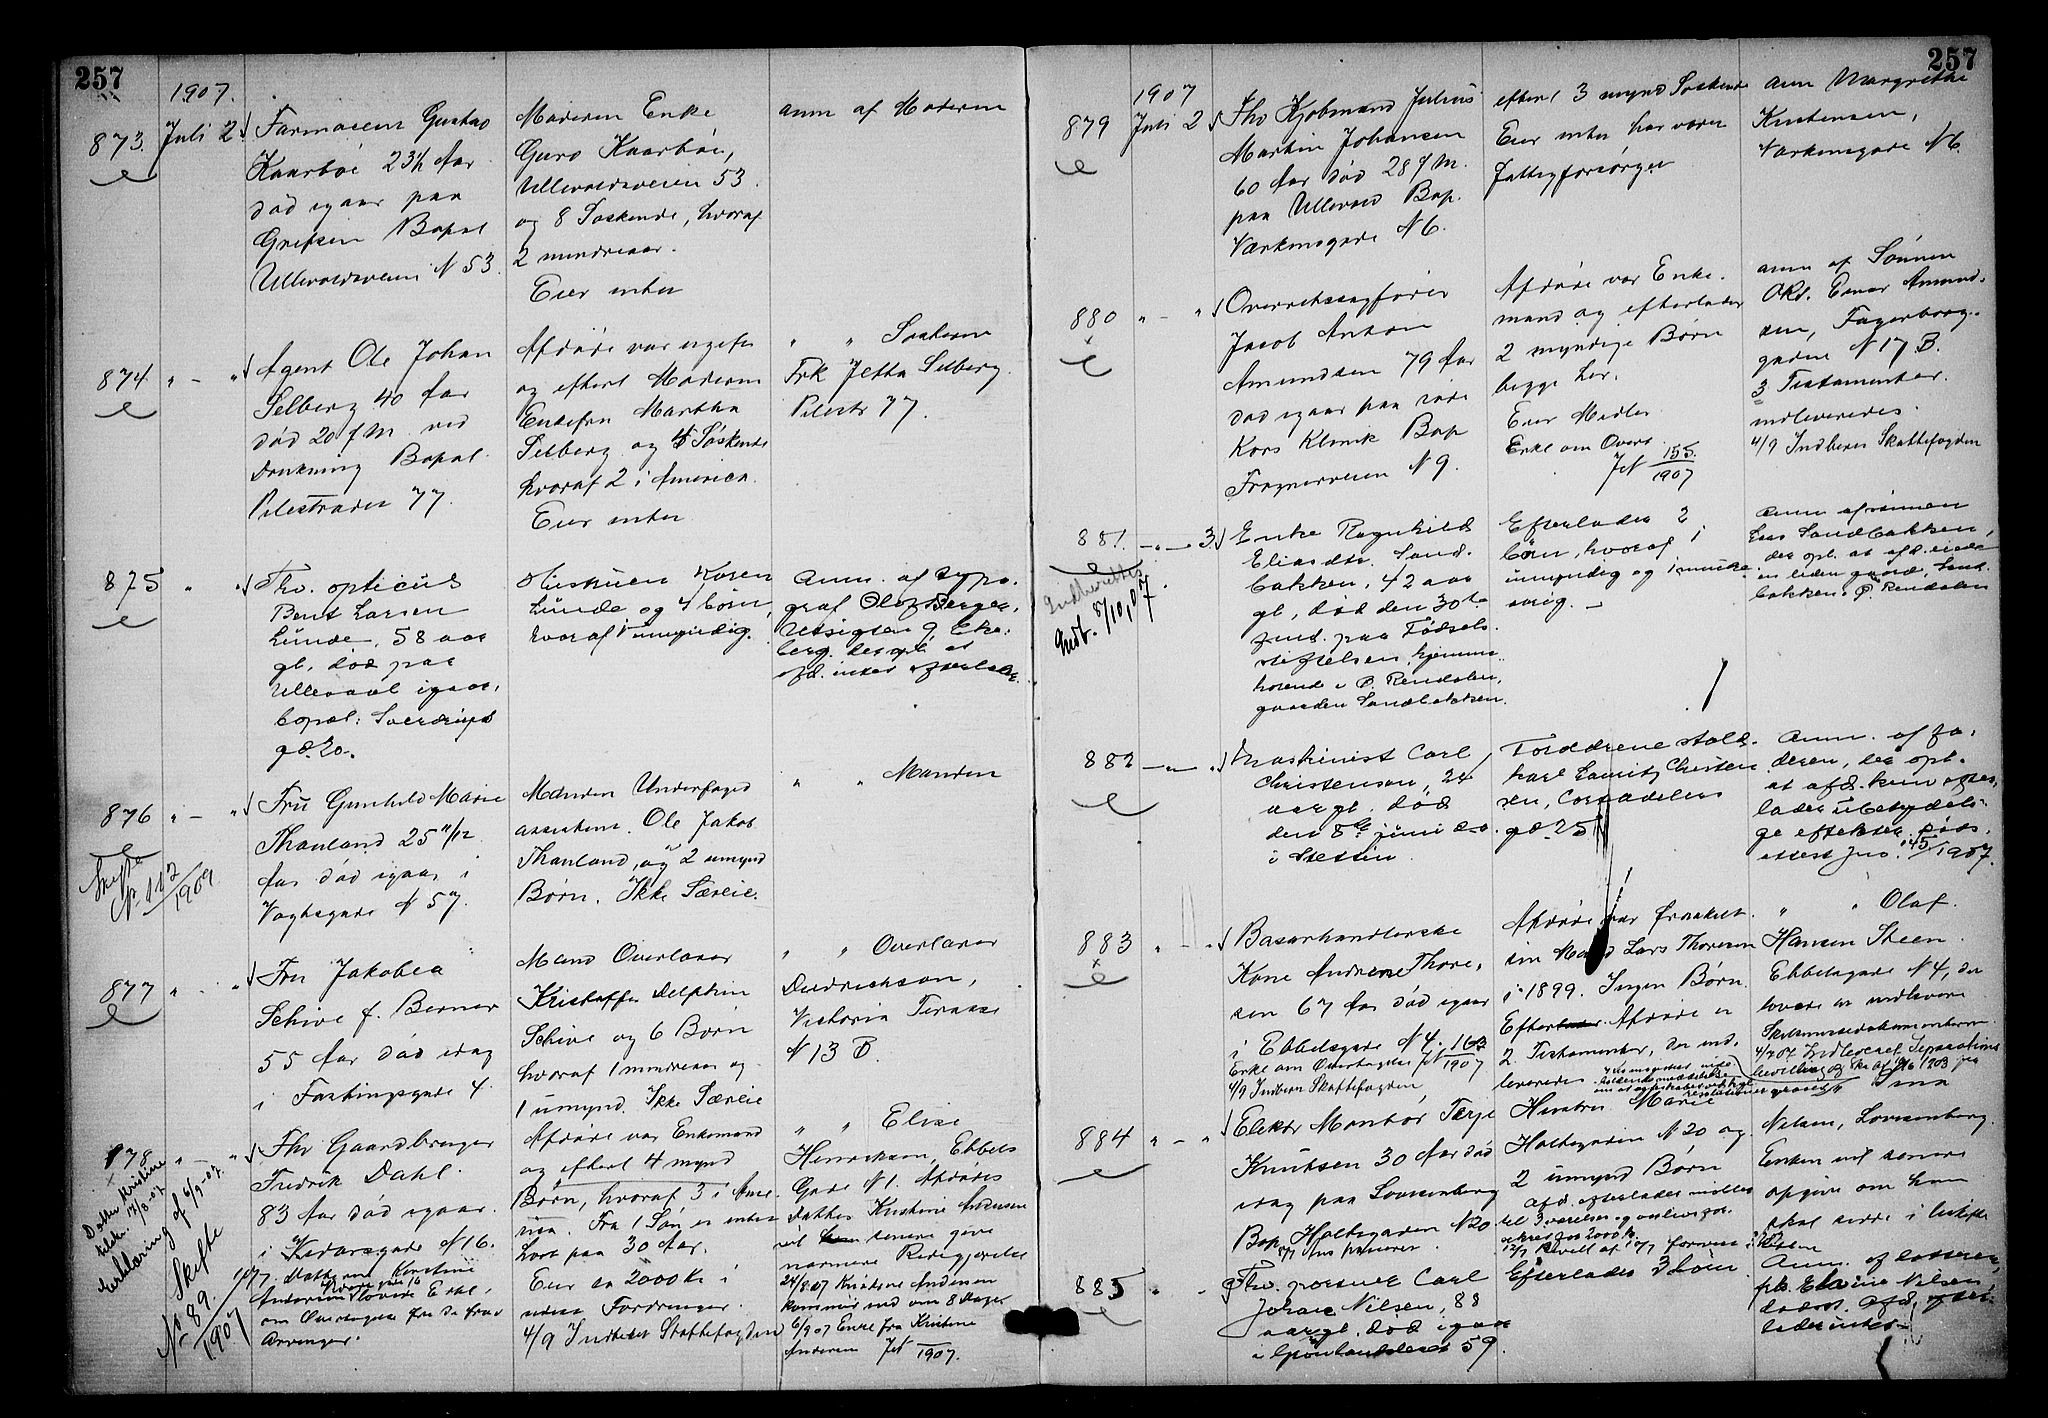 257
1907.
873. Juli 2.
Farmaceut Gustav
Kaarbøe 23½ Aar
død igaar paa
Grefsen Bopæl
Ullevoldsveien N 53.
Moderen Enke
Guro Kaarbøe,
Ullevoldsveien 53.
og 8 Søskende, hvoraf
2 mindreaar.
Eier intet
anm af Moderen
874 " - "
Agent Ole Johan
Selberg 40 Aar
død 20 f M. ved
Drukning Bopæl.
Pilestrædet 77.
Afdøde var ugift
og efterl Moderen
Enkefru Martha
Selberg og 5 Søskende
hvoraf 2 i America.
Eier intet
" " Søsteren
Frk Jetta Selberg.
Pilestr 77.
875 " "
Fhv. opticus
Bent Larsen
Lunde, 58 aar
gl, død paa
Ullevaal igaar,
bopæl: Sverdrups
gd. 20.
Hustruen Karen
Lunde og 4 børn,
hvoraf 1 umyndig.
Anm. af typo-
graf Olaf Berger,
Utsigten 9, Eke-
berg. der opl. at
afd. intet efterlader.
876 " - "
Skifte
N. 112/1909
Fru Gunhild Marie
Thauland 25 11/12
Aar død igaar i
Vogtsgade N 57.
Manden Underfoged
assistent Ole Jakob
Thauland, og 2 umynd
Børn. Ikke Særeie.
" " Manden
877 " - "
Fru Jakobea
Schive f. Berner
55 Aar død idag
i Fastingsgade 4.
Mand Overlærer
Kristoffer Delphin
Schive og 6 Børn
hvoraf 1 mindreaar og
1 umynd. Ikke Særeie
" " Overlærer
Diedrichson,
Victoria Terasse
N 13 B.
878 " - "
Datter Kristine
Erklæring af 6/9-07.
Skifte
No 89./1907
Fhv Gaardbruger
Fredrik Dahl.
83 Aar død igaar.
i N 16.
om Overtagelse fra
Arvinger.
Afdøde var Enkemand
og efterl 4 mynd
Børn, hvoraf 3 i Ame
rica. Fra 1 Søn er intet
hørt paa 30 Aar.
Eier ca 2000 Kr i
Fordringer.
4/9 Indberet Skattefogden
" " Elise
Henriksen, Ebbels
Gade N 1. Afdødes
Datter Kristine Andersen
vil senere give
nærmere Redegjørelse
24/8 07 Kristine Andersen
kommer ind om 8 Dage
6/9 07 Erkl fra Kristine
Andersen JN /1907.
257
1907
879 Juli 2
Fhv Kjøbmand Julius
Martin Johansen
60 Aar død 28 f M.
paa Ullevold Bop.
Værkensgade N 6.
efterl 3 mynd Søskende
Eier intet har været
fattigforsørget
anm Margrethe
Kristensen,
Værkensgade N 6
880 " - "
Overretssagfører
Jacob Anton
Amundsen 79 Aar
død igaar paa røde
Kors Klinik Bop
Frognerveien N 9.
Afdøde var Enke-
mand og efterlader
2 myndige Børn
begge her.
Eier Midler
Erkl om Overt
JN 155./1907
anm af Sønnen
OKs. Einar Amund-
sen, Fagerborg-
gaden N 17 B.
3 Testamenter.
indleveredes.
4/9 Indberet Skattefogden
881. - " - 3.
Indberettet
Indb. 8/10,07
Enke Ragnhild
Eliasdtr. Sand-
bakken, 42 aar
gl, død den 30te
juni paa Fødsels-
stiftelsen, hjemme-
hørende i Ø. Rendalen,
gaarden Sandbakken.
Efterlader 2
børn, hvoraf 1
umyndig og 1 minde-
aarig. -
Anm af sønnen
Lars Sandbakken,
der opl. at afd. eiede
en liden gaard, Sand-
bakken i Ø. Rendalen
882 - " - "
Maskinist Carl
Christensen, 24
aar gl. død
den 8de juni d. a.
i Stettin.
Forældrene stald-
karl Lauritz Christen
sen, Cort Adelers
gd. 25 IV
Anm. af fa-
deren, der opl.
at afd. kun efter-
lader ubetydeli-
ge effekter. Døds-
attest Jno. 145/1907.
883 " - "
Basarhandlerske
Kone Andrine Thore-
sen 67 Aar død igaar
i Ebbelsgade N 4. 163
Erkl om Overtagelse JN 1907
4/9 Indberet Skattefogden
Afdøde var fraskilt
sin Mand Lars Thoresen
i 1899. Ingen Børn.
Afdøde er
2 Testamenter, der ind-
leveredes
" " Olaf
Hansen Steen
Ebbelsgade N 4, der
lovede at indlevere
Skilsmissedokumenterne.
4/7 07 Indleveret Separations
884 " - "
Elektr Montør Terje
Knutsen 30 Aar død
idag paa Lovisenberg
Bop. Holtegaden N 20
Hustru Marie
Holtegaden N 20 og
2 umynd Børn
Afd. efterlader møbler
til 3 værelser
" " Ima
Nilsen, Lovisenberg.
Enken vil senere
opgive om hun
skal sidde i uskiftet
885 " "
Fhv. Carl
Johan Nilsen, 88
aar gl. død igaar
i Grønlandsleret 59.
Efterlader 3 børn
Anm. af datteren,
frk. Elvine Nilsen,
sammest. Afd. efter-
lader intet.